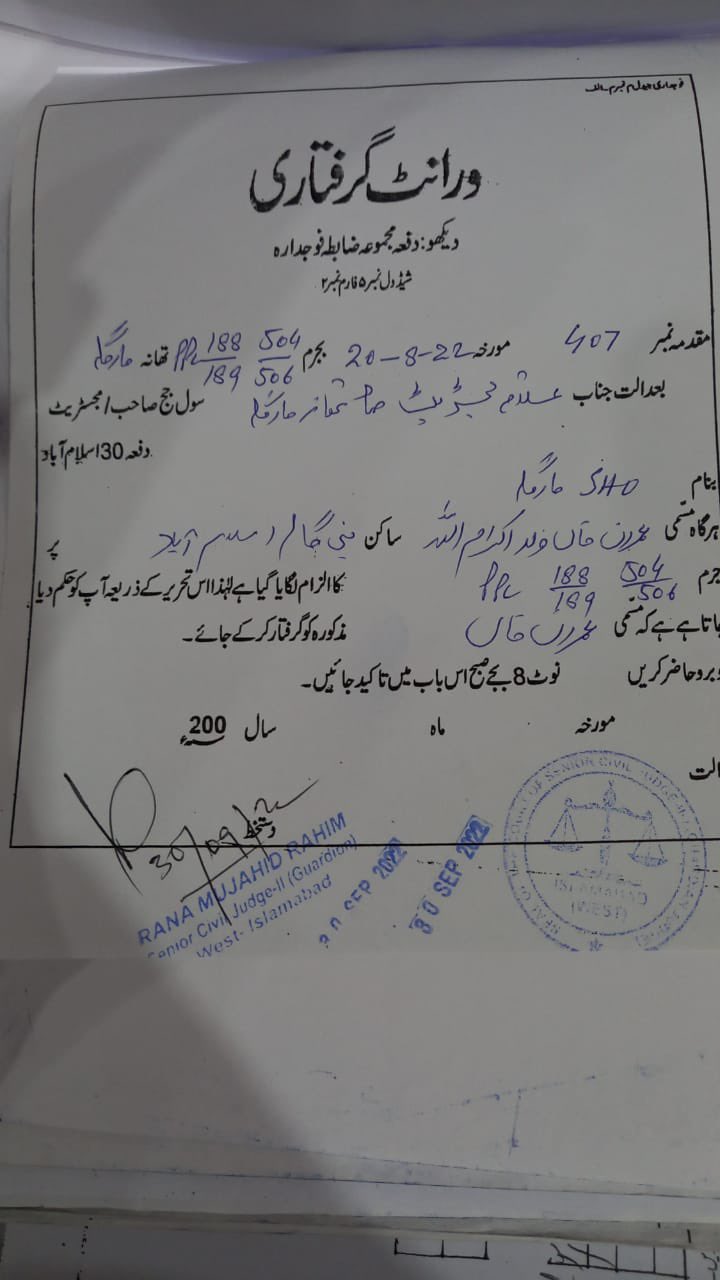 فوجداری جدول نمبر سالف
ورانٹ گرفتاری
دیکھو: دفعہ مجموعہ ضابطہ فوجدارہ
شیڈول نمبر ۵ فارم نمبر ۲
مقدمہ نمبر 407 مورخہ 20-8-22 بجرم 504/506 188/189 PPC تھانہ مارگلہ
بعدالت جناب علاقہ مجسٹریٹ صاحب تھانہ مارگلہ سول جج صاحب/مجسٹریٹ
دفعہ 30 اسلام آباد
بنام SHO مارگلہ
ہرگاہ مسمّی عمران خان ولد اکرام اللہ ساکن بنی گالہ اسلام آباد پر
جرم 504/506 188/189 PPC کا الزام لگایا گیا ہے لہٰذا اس تحریر کے ذریعہ آپ کو حکم دیا
جاتا ہے ہے کہ مسمّی عمران خان مذکورہ کو گرفتار کر کے جائے۔
وبرو حاضر کریں نوٹ 8 بجے صبح اس باب میں تاکید جائیں۔
مورخہ ماہ سال 200ء
الت
دستخط
30/09/22
RANA MUJAHID RAHIM
Senior Civil Judge-II (Guardian)
West- Islamabad
30 SEP 2022
30 SEP 2022
ISLAMABAD
(WEST)